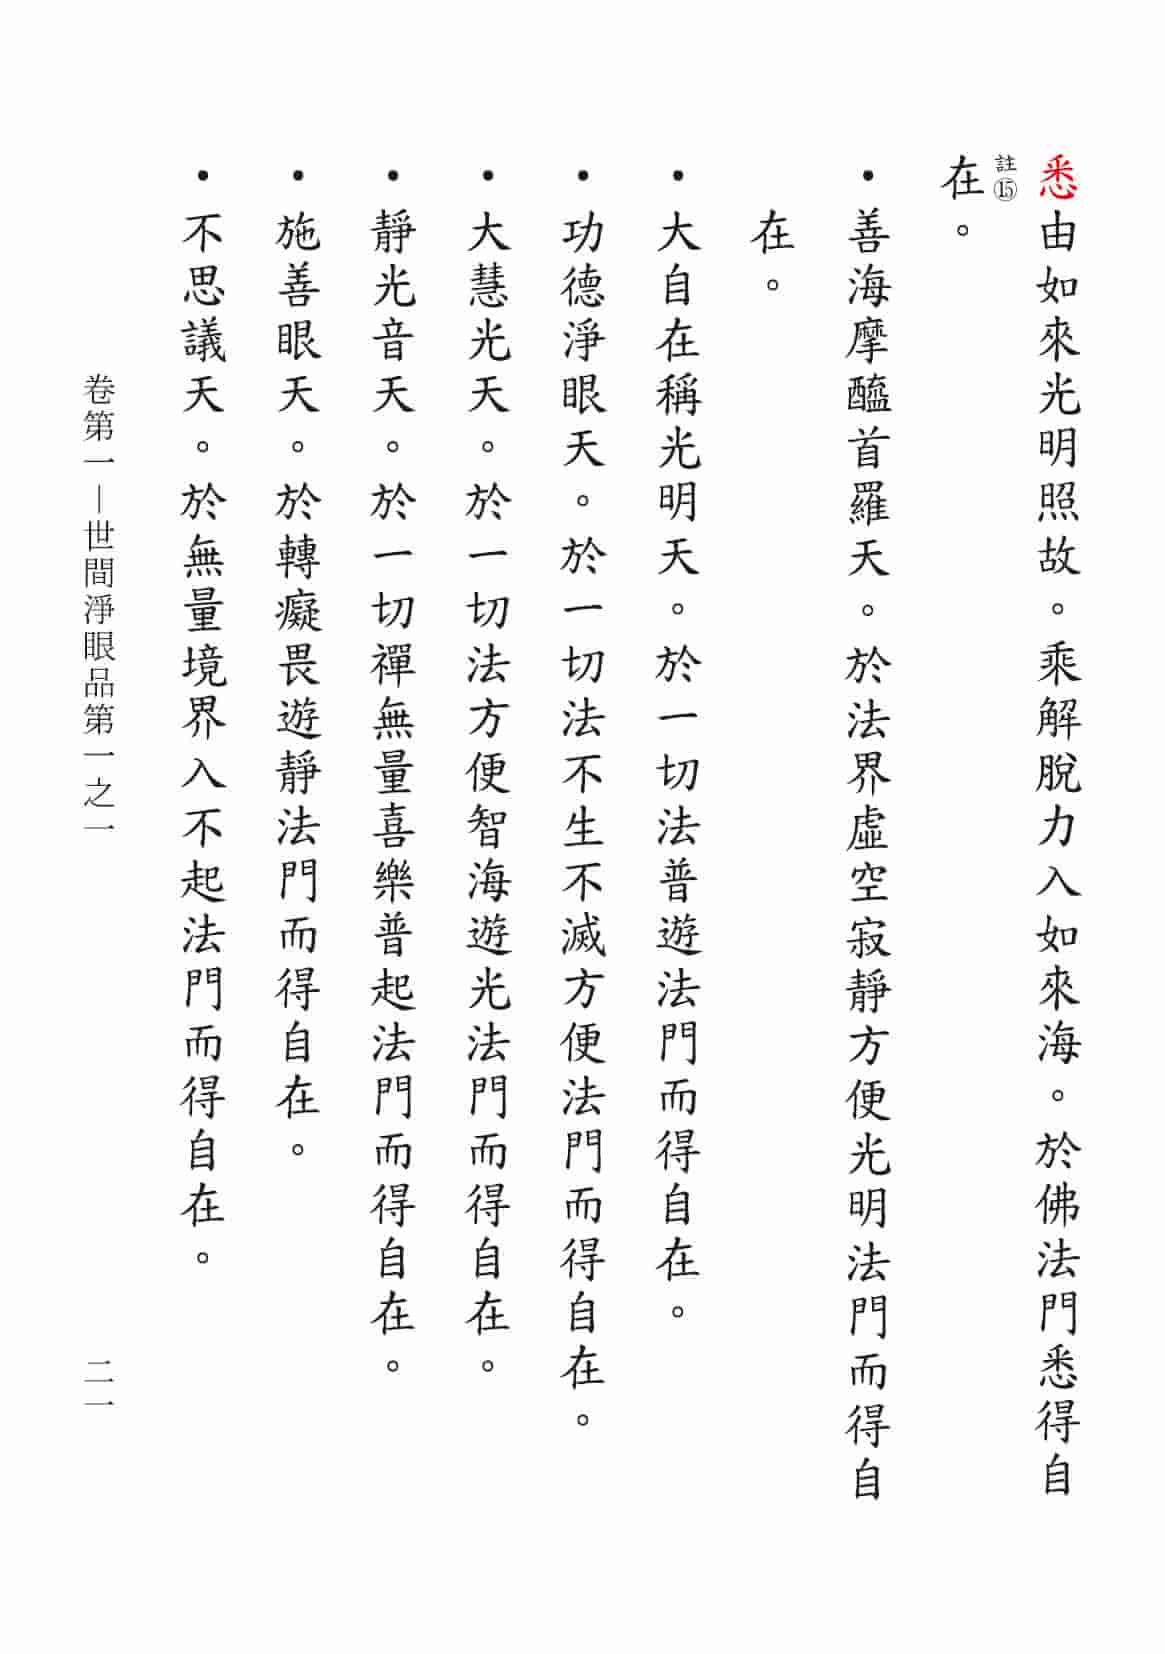 悉由如來光明照故。乘解脫力入如來海。於佛法門悉得自
註⑮
在。
•善海摩醯首羅天。於法界虛空寂靜方便光明法門而得自
在。
•大自在稱光明天。於一切法普遊法門而得自在。
•功德淨眼天。於一切法不生不滅方便法門而得自在。
•大慧光天。於一切法方便智海遊光法門而得自在。
•靜光音天。於一切禪無量喜樂普起法門而得自在。
•施善眼天。於轉癡畏遊靜法門而得自在。
•不思議天。於無量境界入不起法門而得自在。
卷第一—世間淨眼品第一之一
二一